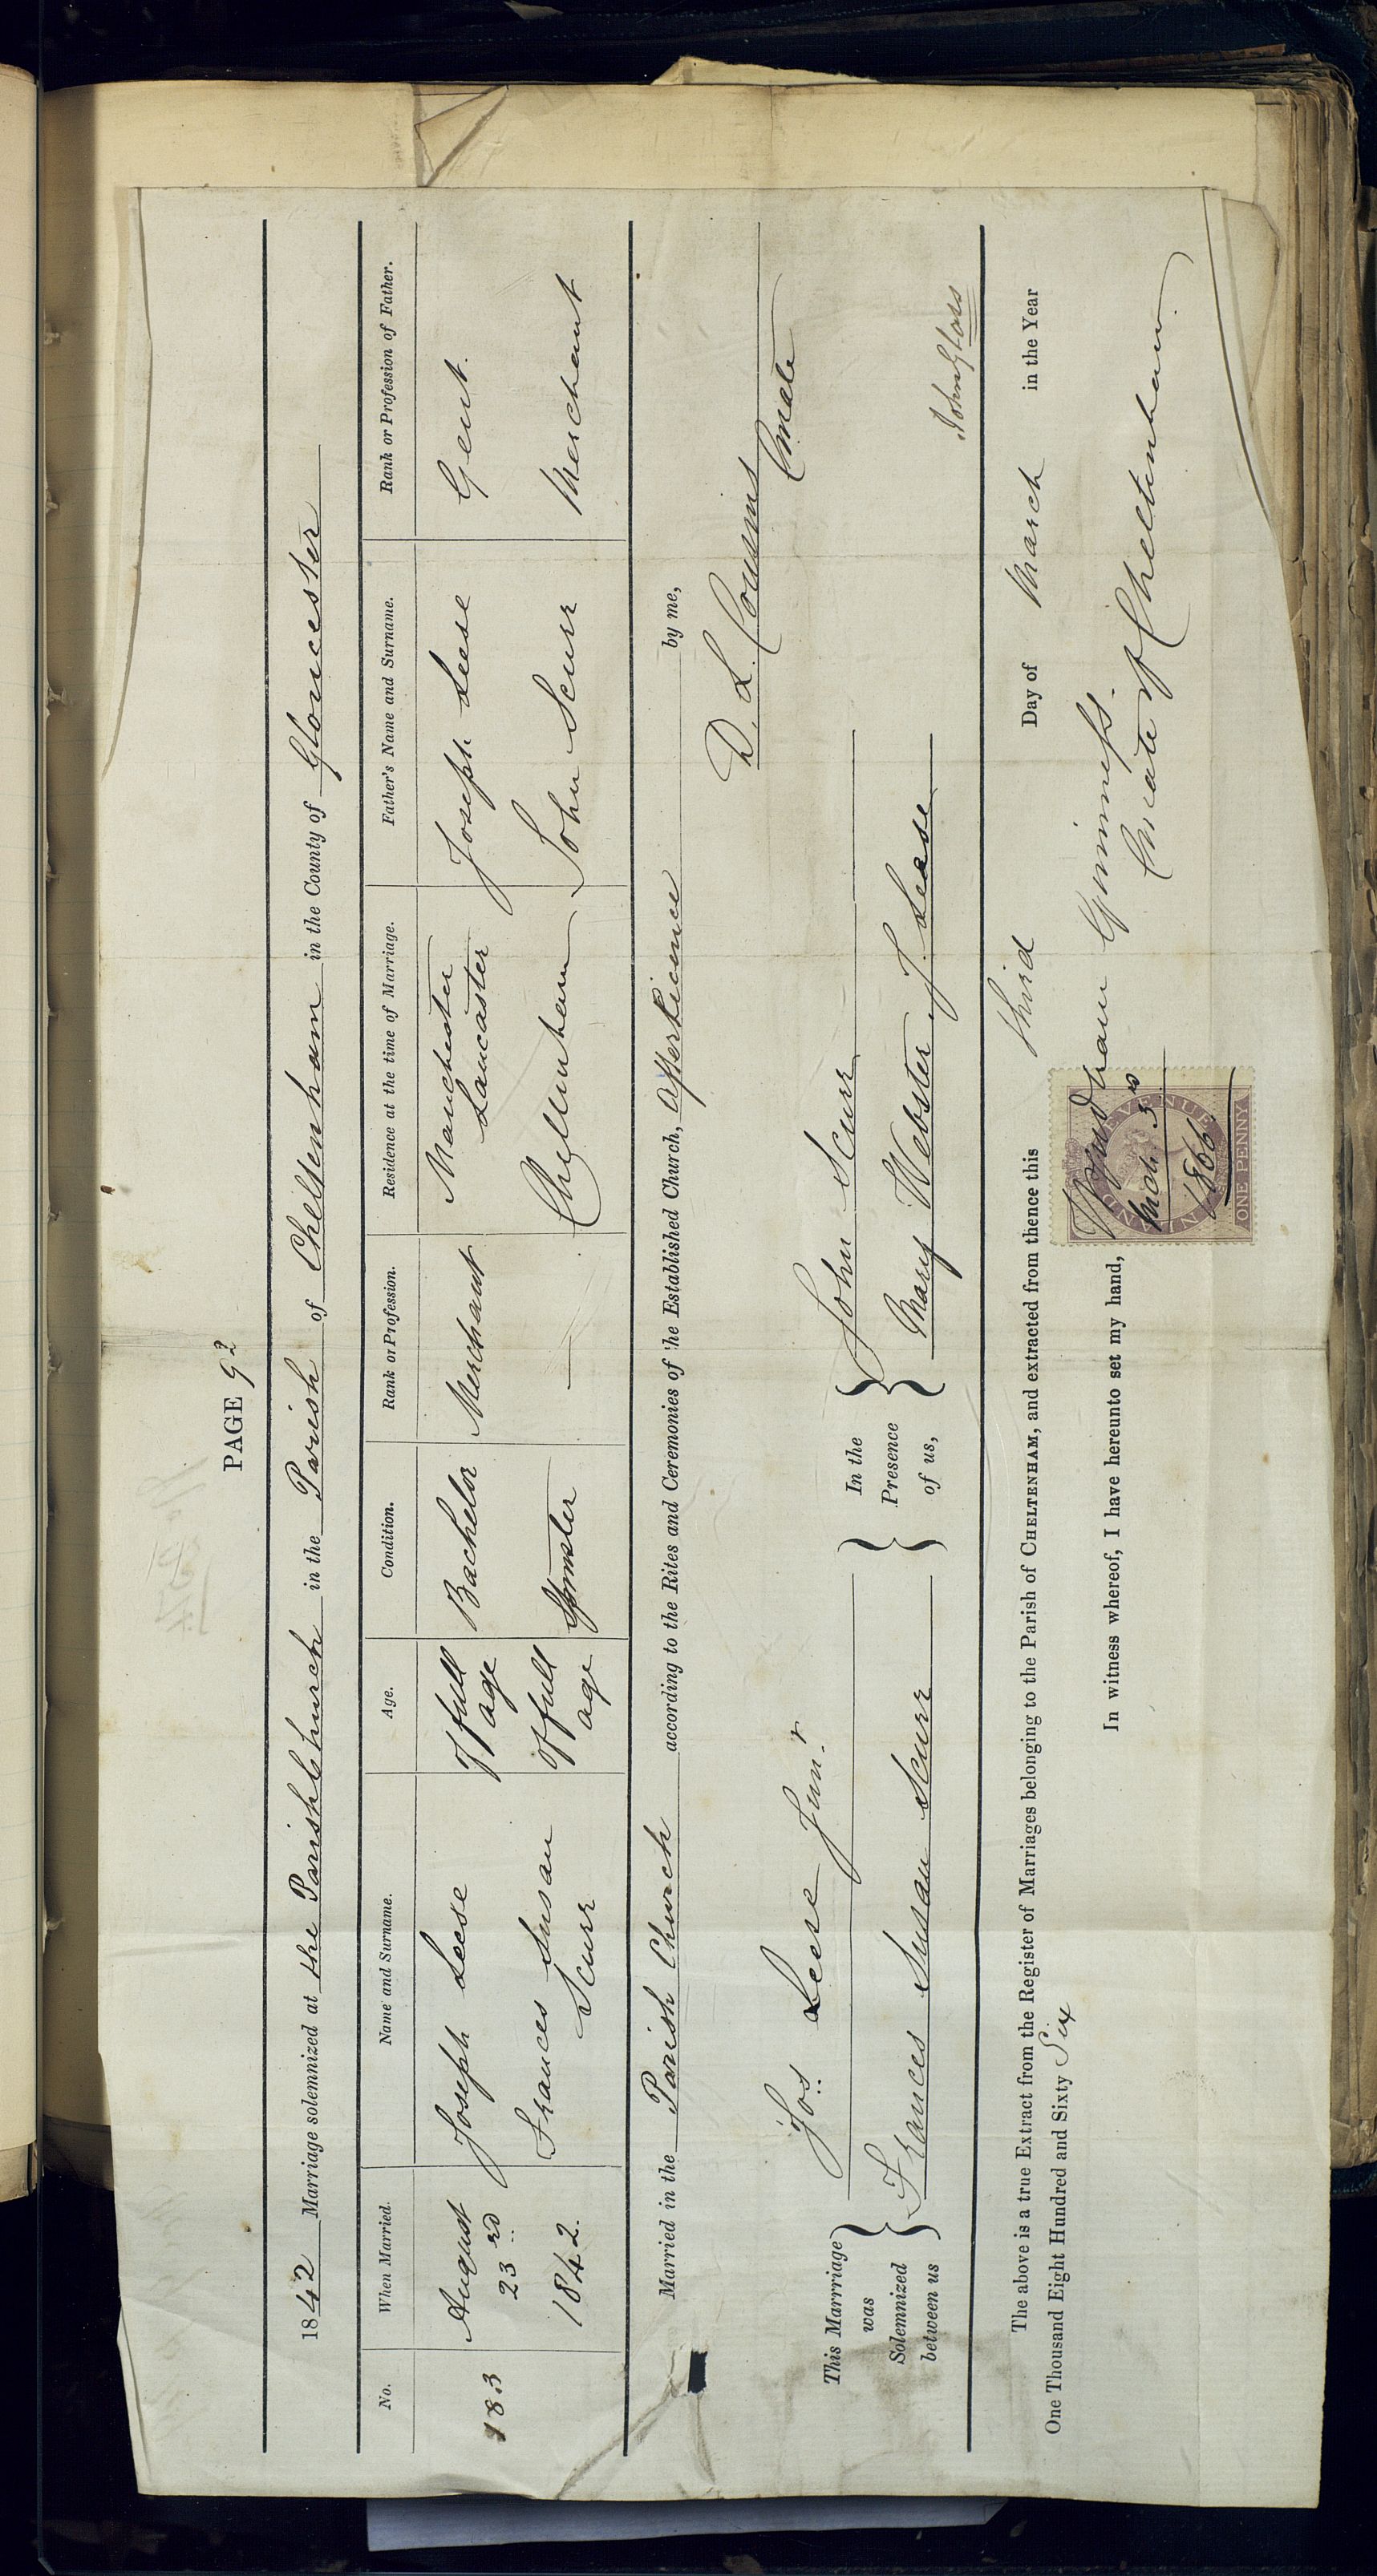 PAGE 92
1842 Marriage solemnized at the Parish Church in the Parish of Cheltenham in the County of Gloucester
No. When Married. Name and Surname. Age. Condition. Rank or Profession. Residence at the time of Marriage. Father's Name and Surname. Rank or Profession of Father.
183 August 23rd 1842. Joseph Leese Of full age Bachelor Merchant Manchester Lancaster Joseph Leese Gent.
Frances Susan Scurr Of full age Spinster — Cheltenham John Scurr Merchant
Married in the Parish Church according to the Rites and Ceremonies of the Established Church, after Licence by me,
D. L. Cousins
Curate
This Marriage was Solemnized between us
Jos. Leese Junr.
Frances Susan Scurr
In the Presence of us,
John Scurr
Mary Webster J. Lease
John Glass
The above is a true Extract from the Register of Marriages belonging to the Parish of CHELTENHAM, and extracted from thence this third Day of March in the Year
One Thousand Eight Hundred and Sixty Six
In witness whereof, I have hereunto set my hand, Wyndham Guinness.
Curate of Cheltenham.
INLAND REVENUE
Mch. 3rd
1866
ONE PENNY